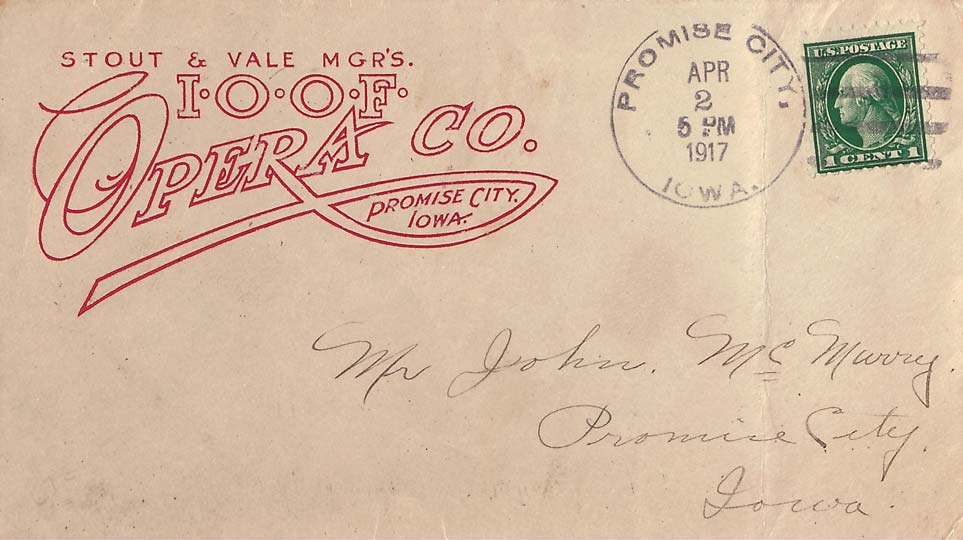 STOUT & VALE MGR'S.
I·O·O·F·
OPERA CO.
PROMISE CITY.
IOWA.
PROMISE CITY,
APR
2
5 PM
1917
IOWA.
U.S. POSTAGE
1 CENT 1
Mr John. Mc Murry.
Promise City.
Iowa.